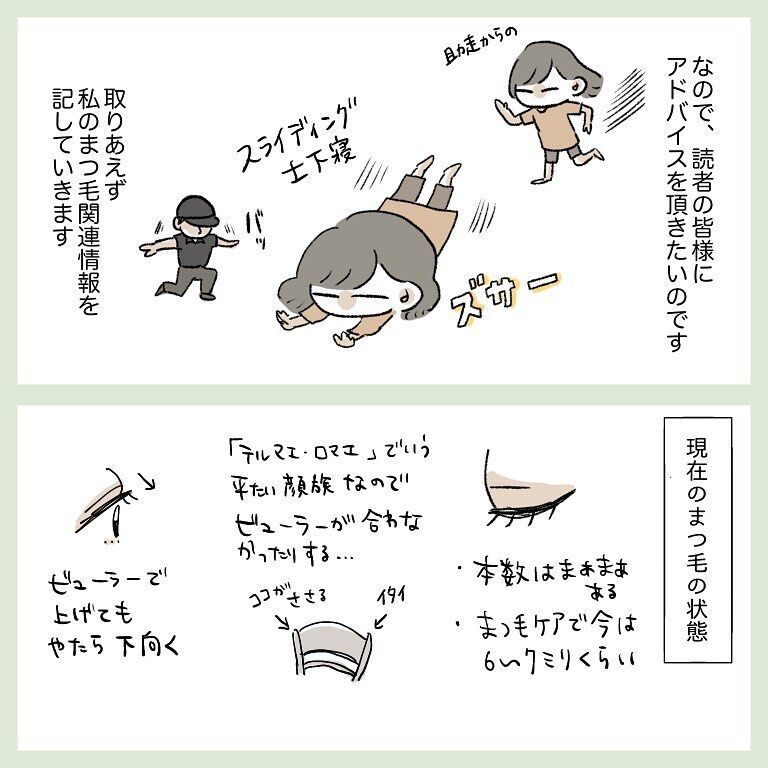 なので、読者の皆様に
アドバイスを頂きたいのです
助走からの
スライディング
土下寝
ズサー
バッ
取りあえず
私のまつ毛関連情報を
記していきます
現在のまつ毛の状態
・本数はまぁまぁ
ある
・まつ毛ケアで今は
6〜7ミリくらい
「テルマエ・ロマエ」でいう
平たい顔族なので
ビューラーが合わな
かったりする…
ココがささる
イタイ
ビューラーで
上げても
やたら下向く